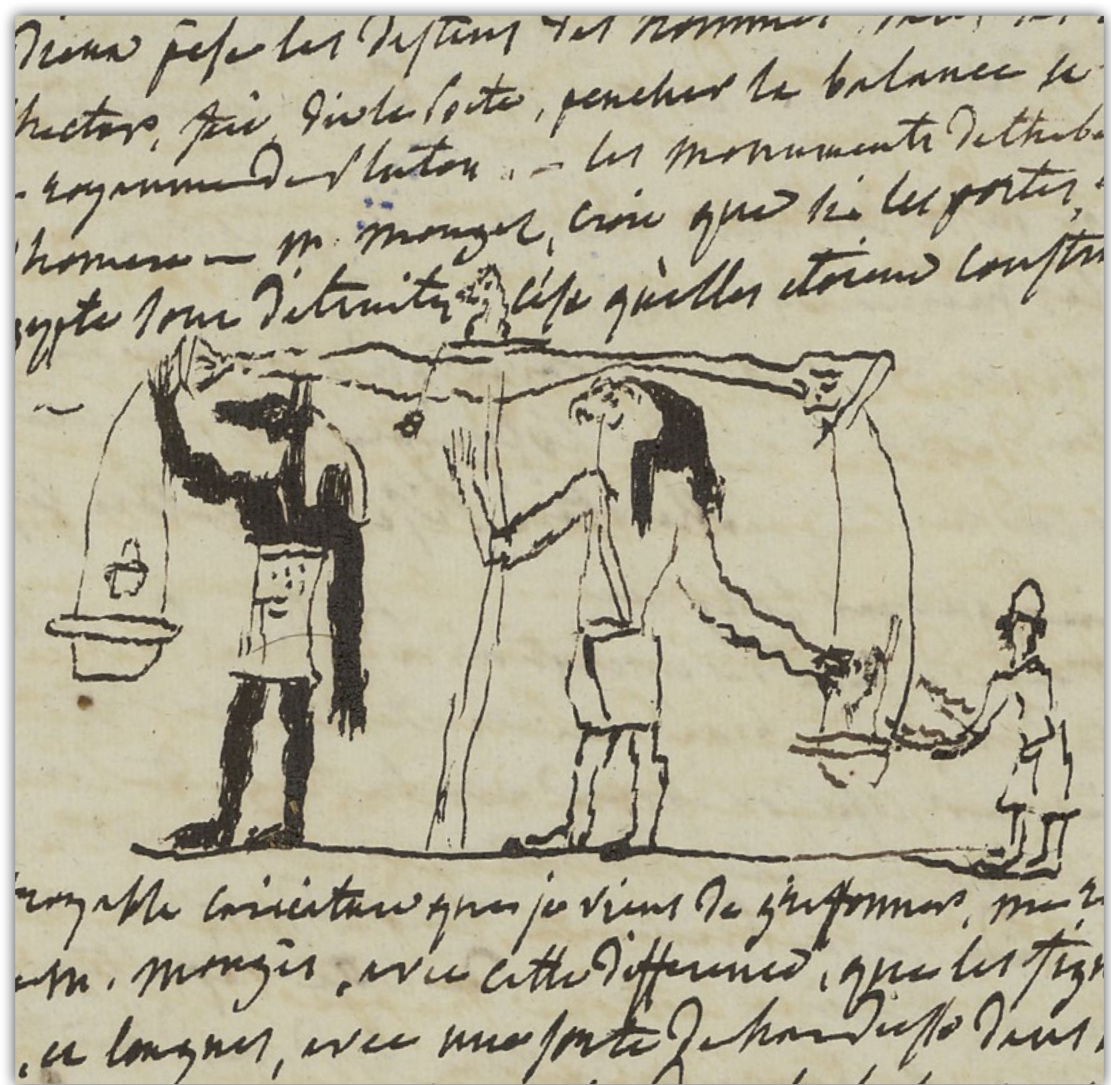 Dieux pese les destins des hommes
hector, fair, dit le poete, pencher la balance
royaume de Pluton . - les monuments de theb
homere - m. monges, croit que si les portes,
egypte sont detruites, c'est qu'elles etoient constru
croyable caricature que je viens de griffonner, me
m. monges, avec cette difference, que les fig
, et longues, avec une sorte de hardiesse dans